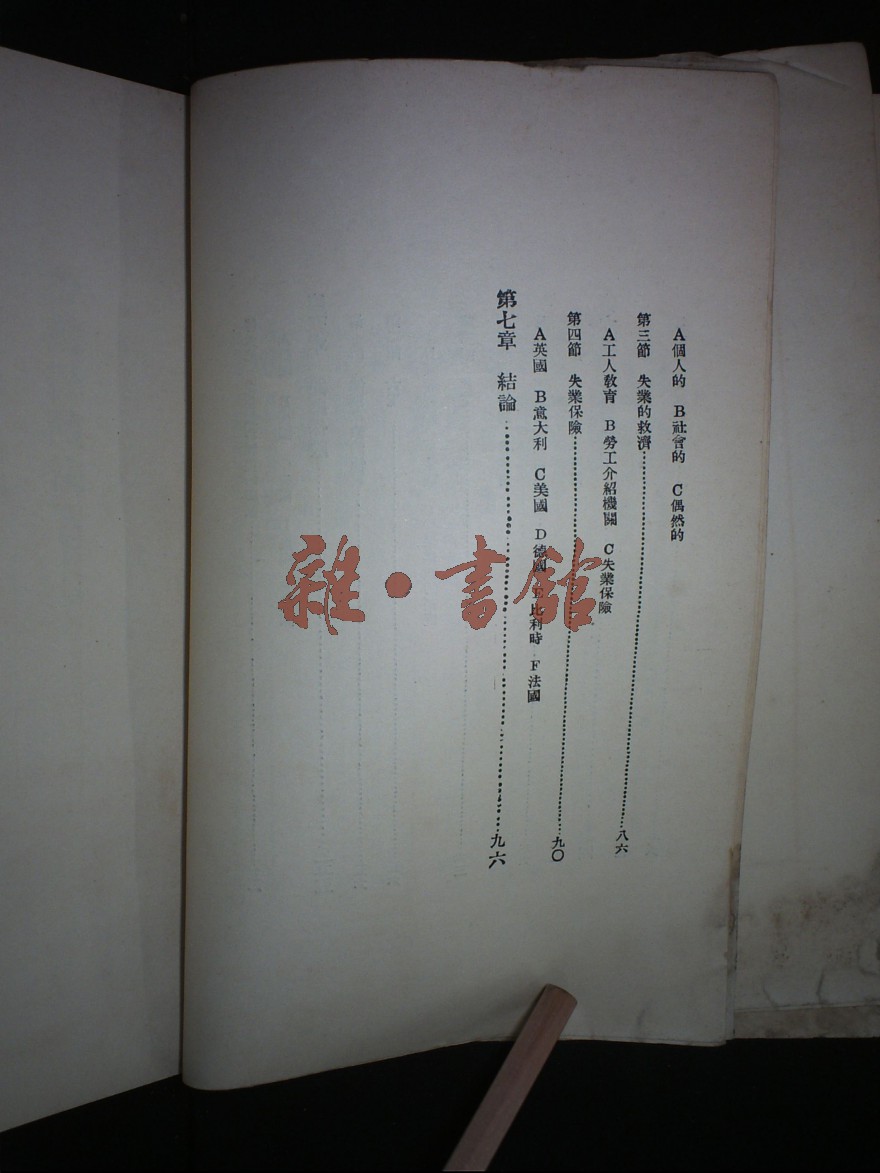 A個人的　B社會的　C偶然的
第三節　失業的救濟……………………八六
A工人教育　B勞工介紹機關　C失業保險
第四節　失業保險……………………九〇
A英國　B意大利　C美國　D德國　E比利時　F法國
第七章　結論……………………九六
雜·書館